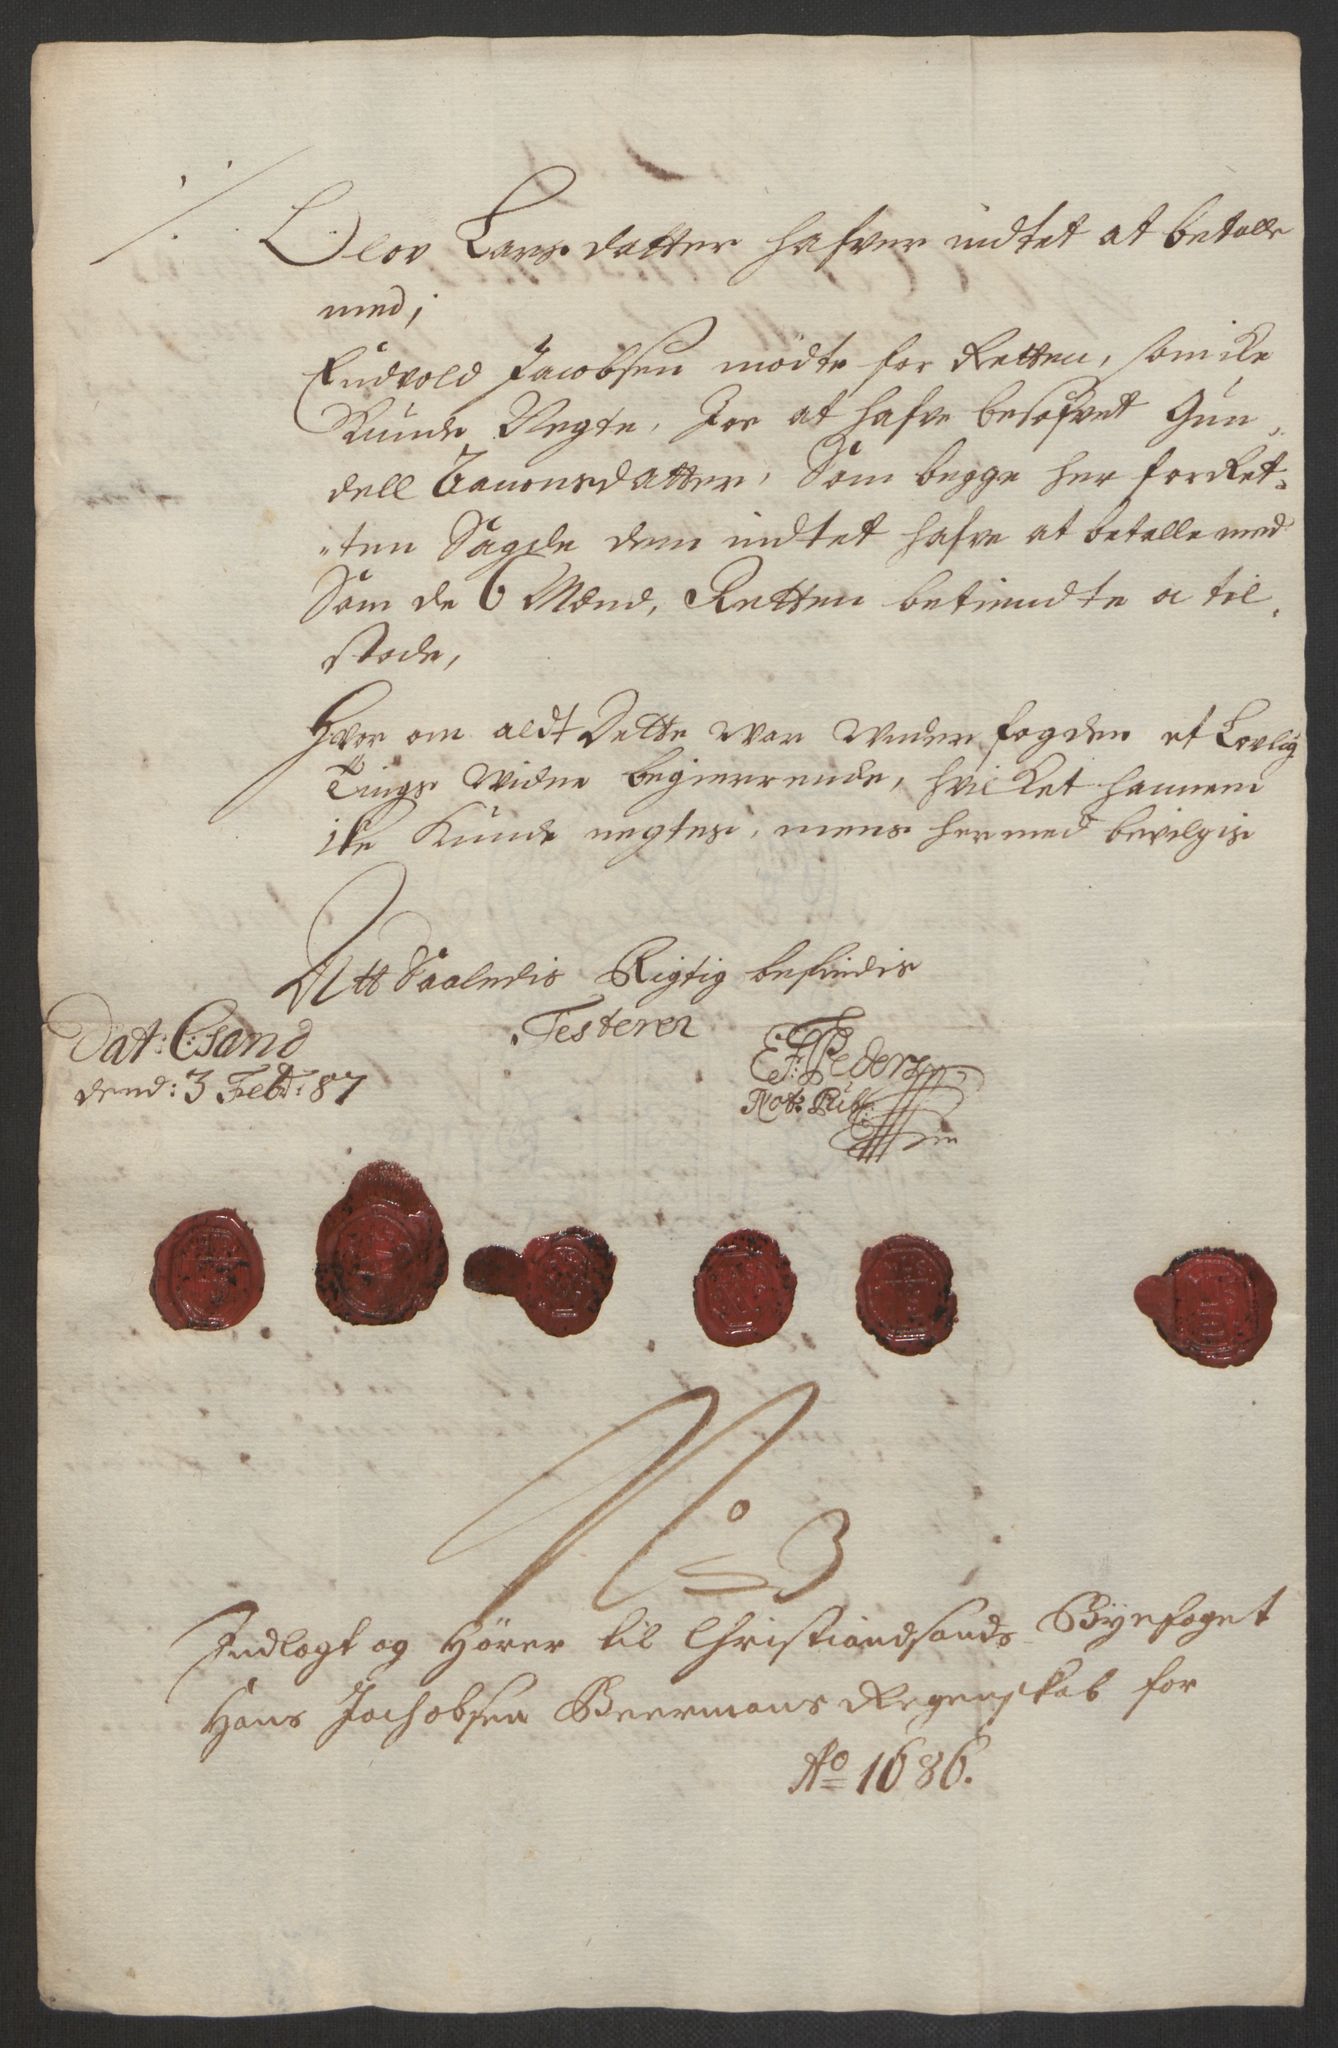 Olov Larsdatter hafver indtet at betalle
med;
Endvold Jacobsen mödte for Retten, som icke
Kunde Negte, Joe at hafve besofvet Gun„
dell Tavonsdatter, Som begge her for Ret„
„ten Sagde dem indtet hafve at betalle med
Som de 6 Mænd, Retten betiendte oc til„
stode,
Hvor om aldt Dette war under fogden et Lovlig
Tings Widne begierende, hvilket hannem
icke Kunde negtes, mens hermed bevilgis
Att Saaledis Rigtig befindis
Testerer
Dat: C:sand
dend: 3 Febr: 87
E: F: Peders
Not: Publ:
No 3
Indlagt og Hörer til Christiandsands Byefoget
Hans Jachobsen Beermans Regenskab for
Ao 1686.